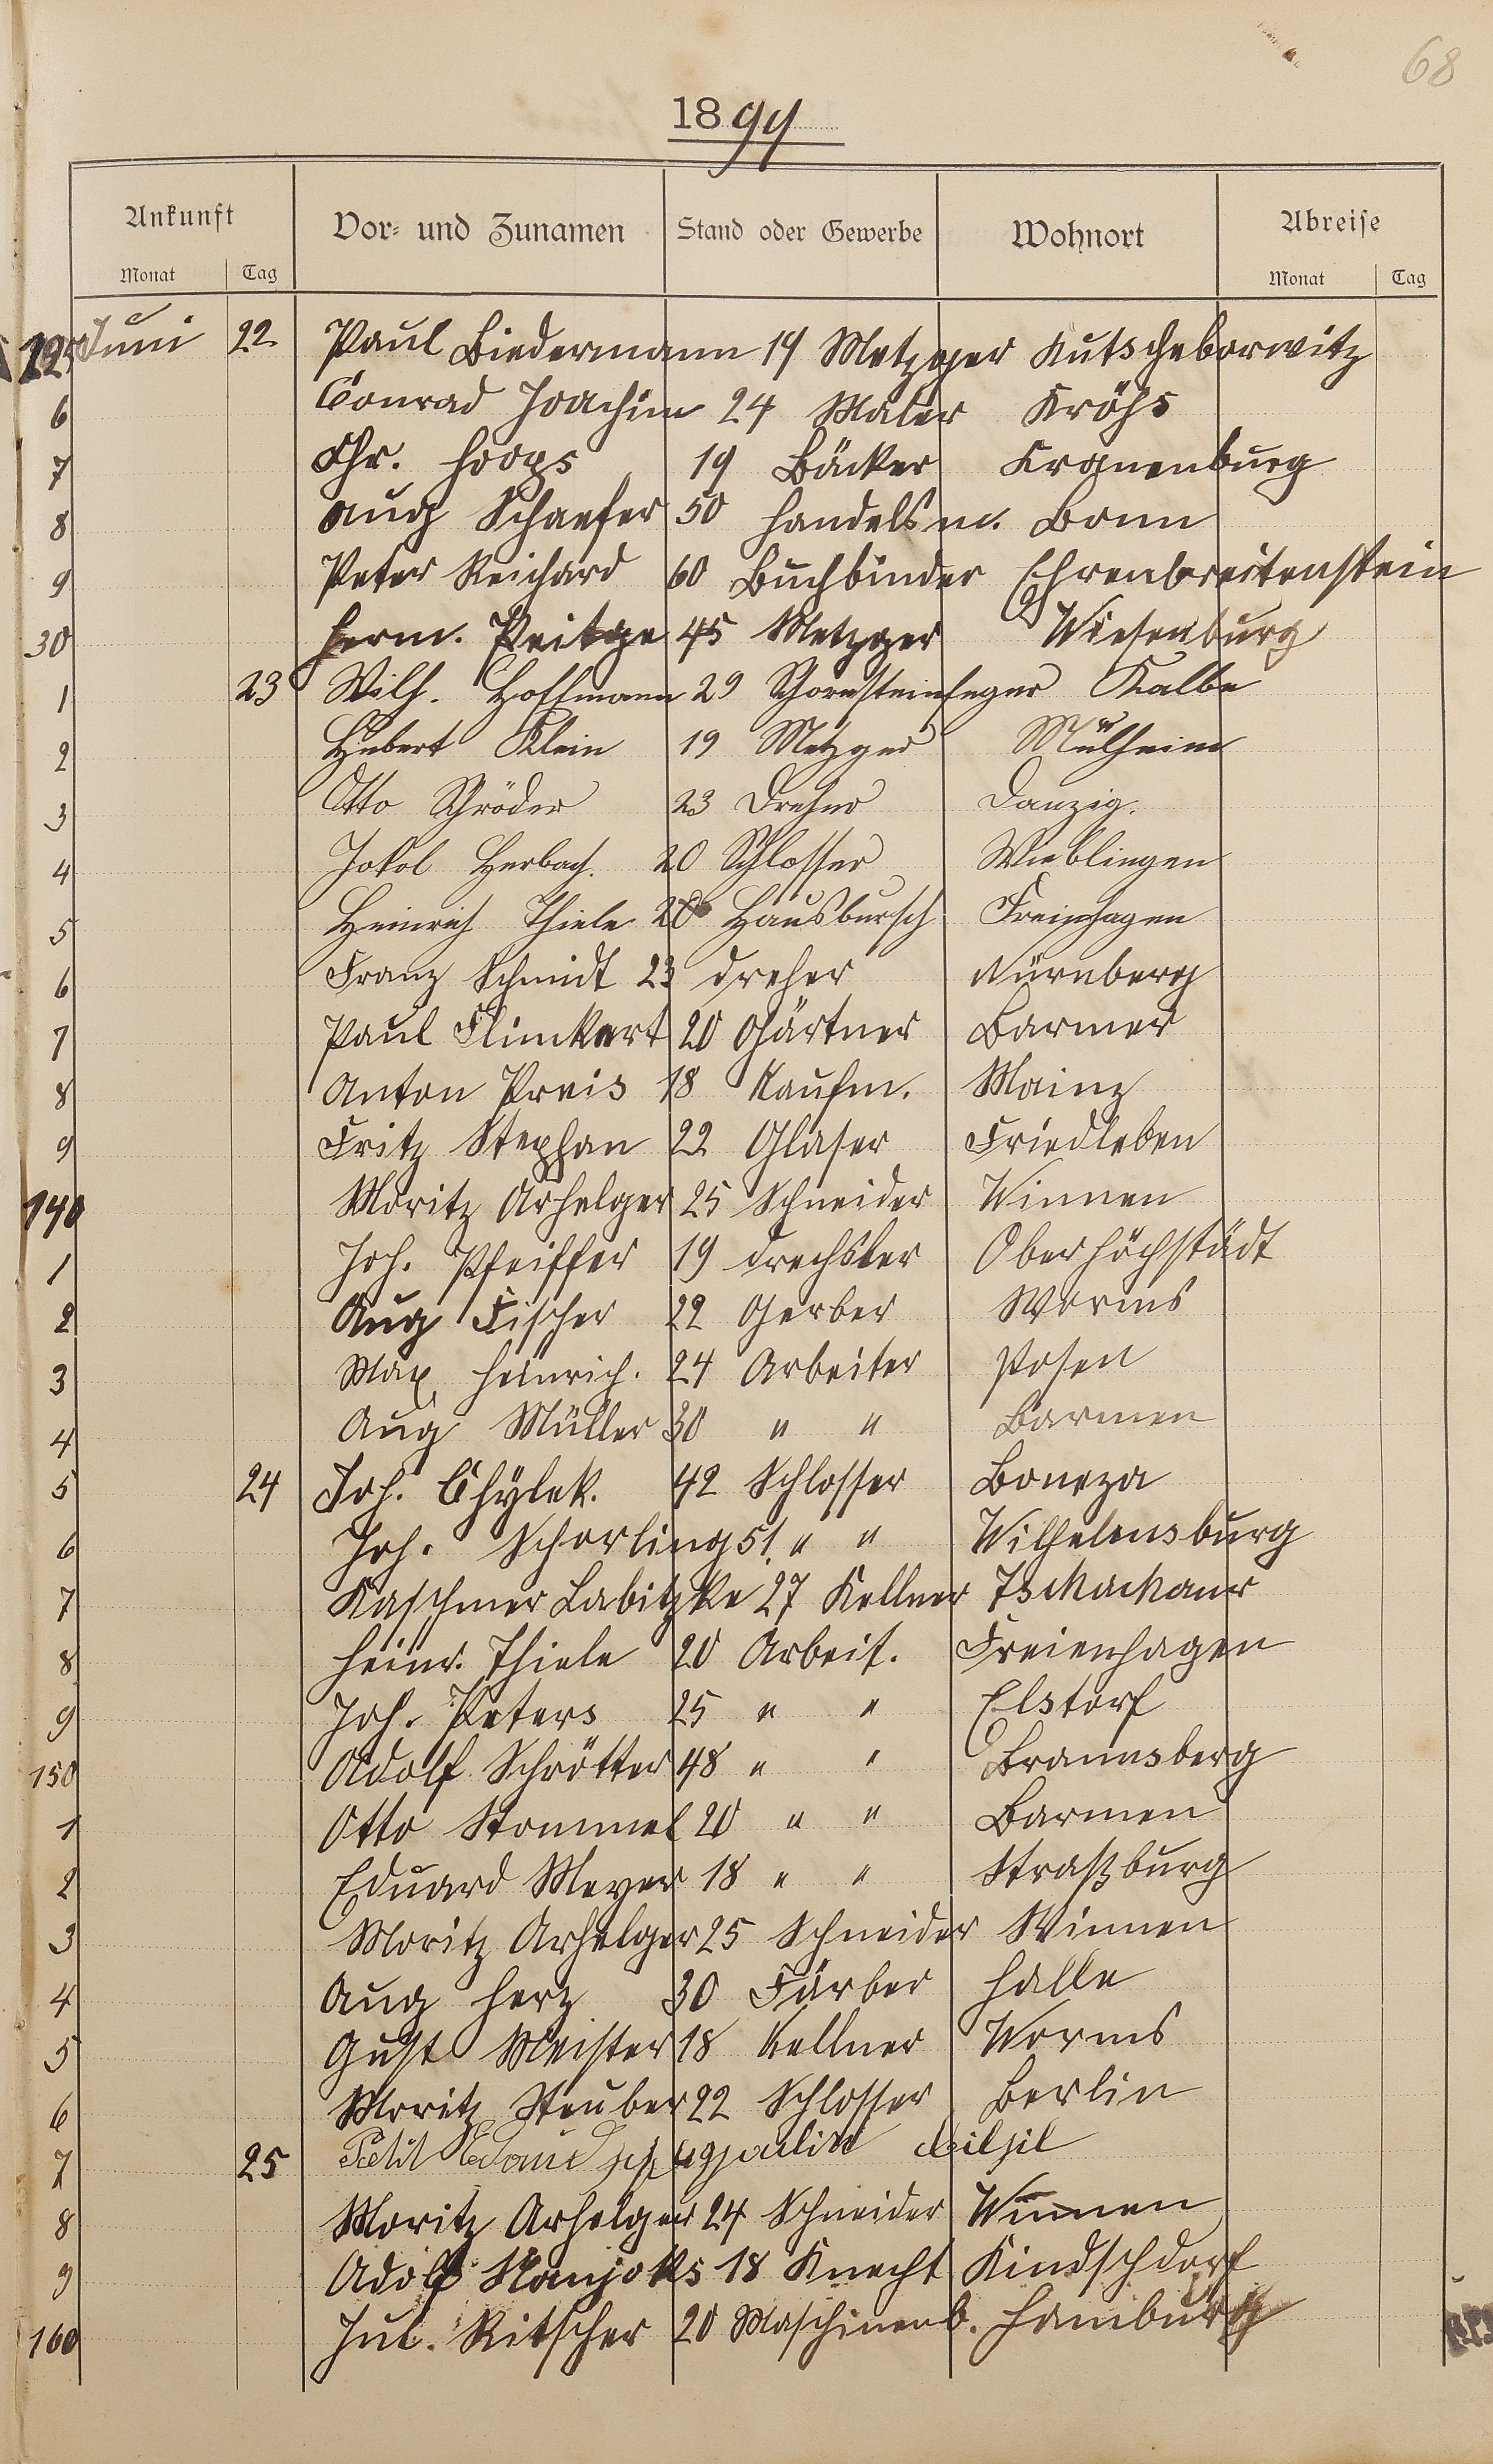 68
1899
Ankunft Vor- und Zunamen Stand oder Gewerbe Wohnort Abreise
Monat Tag Monat Tag
125 Juni 22 Paul Biedermann 19 Metzger Kutscheborwitz
6 Conrad Joachim 24 Maler Kröhs
7 Chr. Hoops 19 Bäcker Kranenburg
8 Aug Schaefer 50 Handelsm. Bonn
9 Peter Reichard 60 Buchbinder Ehrenbreitenstein
30 Herm. Peitge 45 Metzger Wiesenburg
1 23 Wilh. Hoffmann 29 Schornsteinfeger Kalbe
2 Hubert Klein 19 Metzger Mülheim
3 Otto Schröder 23 Dreher Danzig.
4 Jakob Herbach. 20 Schlosser Wieblingen
5 Heinrich Thiele 20 Hausbursch Freienhagen
6 Franz Schmidt 23 Dreher Nürnberg
7 Paul Flinkert 20 Gärtner Barmen
8 Anton Preis 18 Kaufm. Mainz
9 Fritz Stephan 22 Glaser Friedleben
140 Moritz Arhelger 25 Schneider Winnen
1 Joh. Pfeiffer 19 Drechsler Oberhöchstädt
2 Aug Fischer 22 Gerber Worms
3 Max Heinrich. 24 Arbeiter Posen
4 Aug Müller 30 " " Barmen
5 24 Joh. Chylek. 42 Schlosser Boneza
6 Joh. Schorling 51. " " Wilhelmsburg
7 Kaschmer Labitzke 27 Kellner Tschachaur
8 Heinr. Thiele 20 Arbeit. Freienhagen
9 Joh. Peters 25 " " Elstorf
150 Adolf Schrötter 48 " " Braunsberg
1 Otto Stommel 20 " " Barmen
2 Eduard Meyer 18 " " Straßburg
3 Moritz Arhelger 25 Schneider Winnen
4 Aug Herz 30 Färber Halle
5 Gust Meister 18 Kellner Worms
6 Moritz Steuber 22 Schlosser Berlin
7 25
8 Moritz Arhelger 24 Schneider Winnen
9 Adolf Nanjoks 18 Knecht Kindschdorf
160 Jul. Ritscher 20 Maschinenb. Hamburg